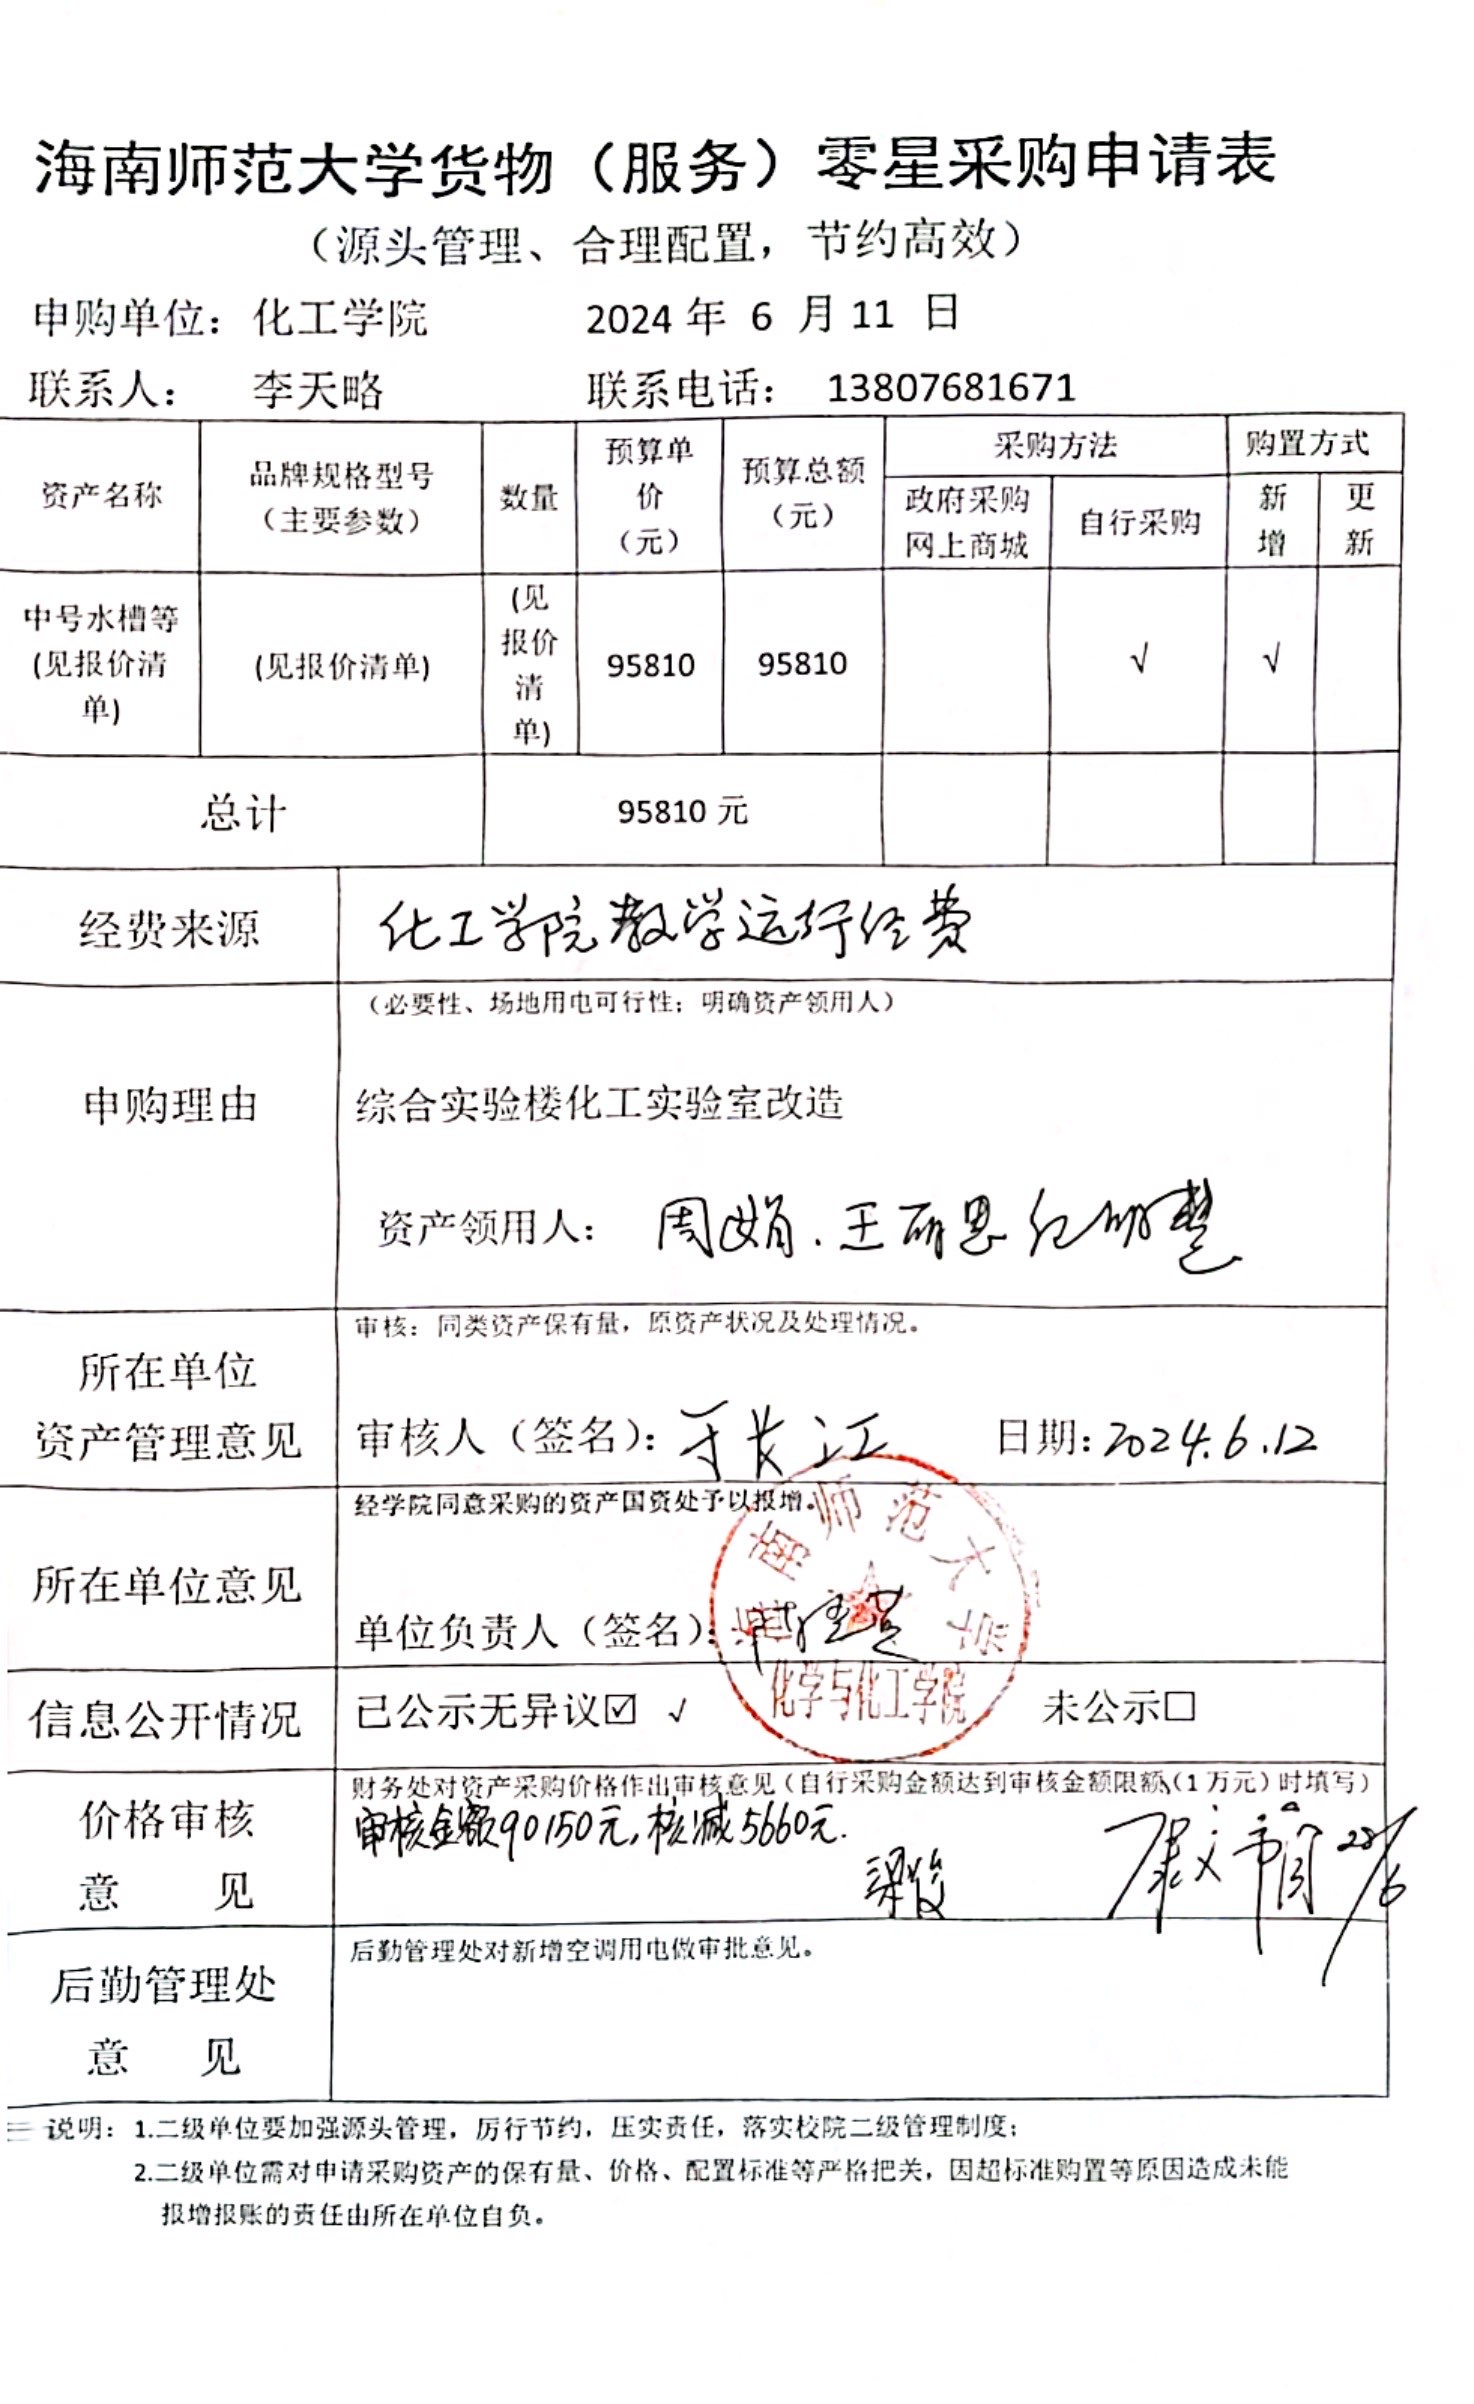 海南师范大学货物（服务）零星采购申请表
（源头管理、合理配置，节约高效）
申购单位：化工学院 2024 年 6 月 11 日
联系人： 李天略 联系电话： 13807681671
资产名称 品牌规格型号（主要参数） 数量 预算单价（元） 预算总额（元） 采购方法 购置方式
政府采购网上商城 自行采购 新增 更新
中号水槽等(见报价清单) (见报价清单) (见报价清单) 95810 95810 √ √
总计 95810 元
经费来源 化工学院教学运行经费
（必要性、场地用电可行性；明确资产领用人）
申购理由 综合实验楼化工实验室改造
资产领用人： 周娟．王丽恩
审核：同类资产保有量，原资产状况及处理情况。
所在单位
资产管理意见 审核人（签名）：于长江 日期：2024.6.12
经学院同意采购的资产国资处予以报增。
所在单位意见
单位负责人（签名）：
海南师范大学
化学与化工学院
信息公开情况 已公示无异议☑ √ 未公示□
财务处对资产采购价格作出审核意见（自行采购金额达到审核金额限额（1 万元）时填写）
价格审核
意 见
审核金额90150元，核减5660元.
梁俊
28/6
后勤管理处对新增空调用电做审批意见。
后勤管理处
意 见
说明：1.二级单位要加强源头管理，厉行节约，压实责任，落实校院二级管理制度；
2.二级单位需对申请采购资产的保有量、价格、配置标准等严格把关，因超标准购置等原因造成未能
报增报账的责任由所在单位自负。